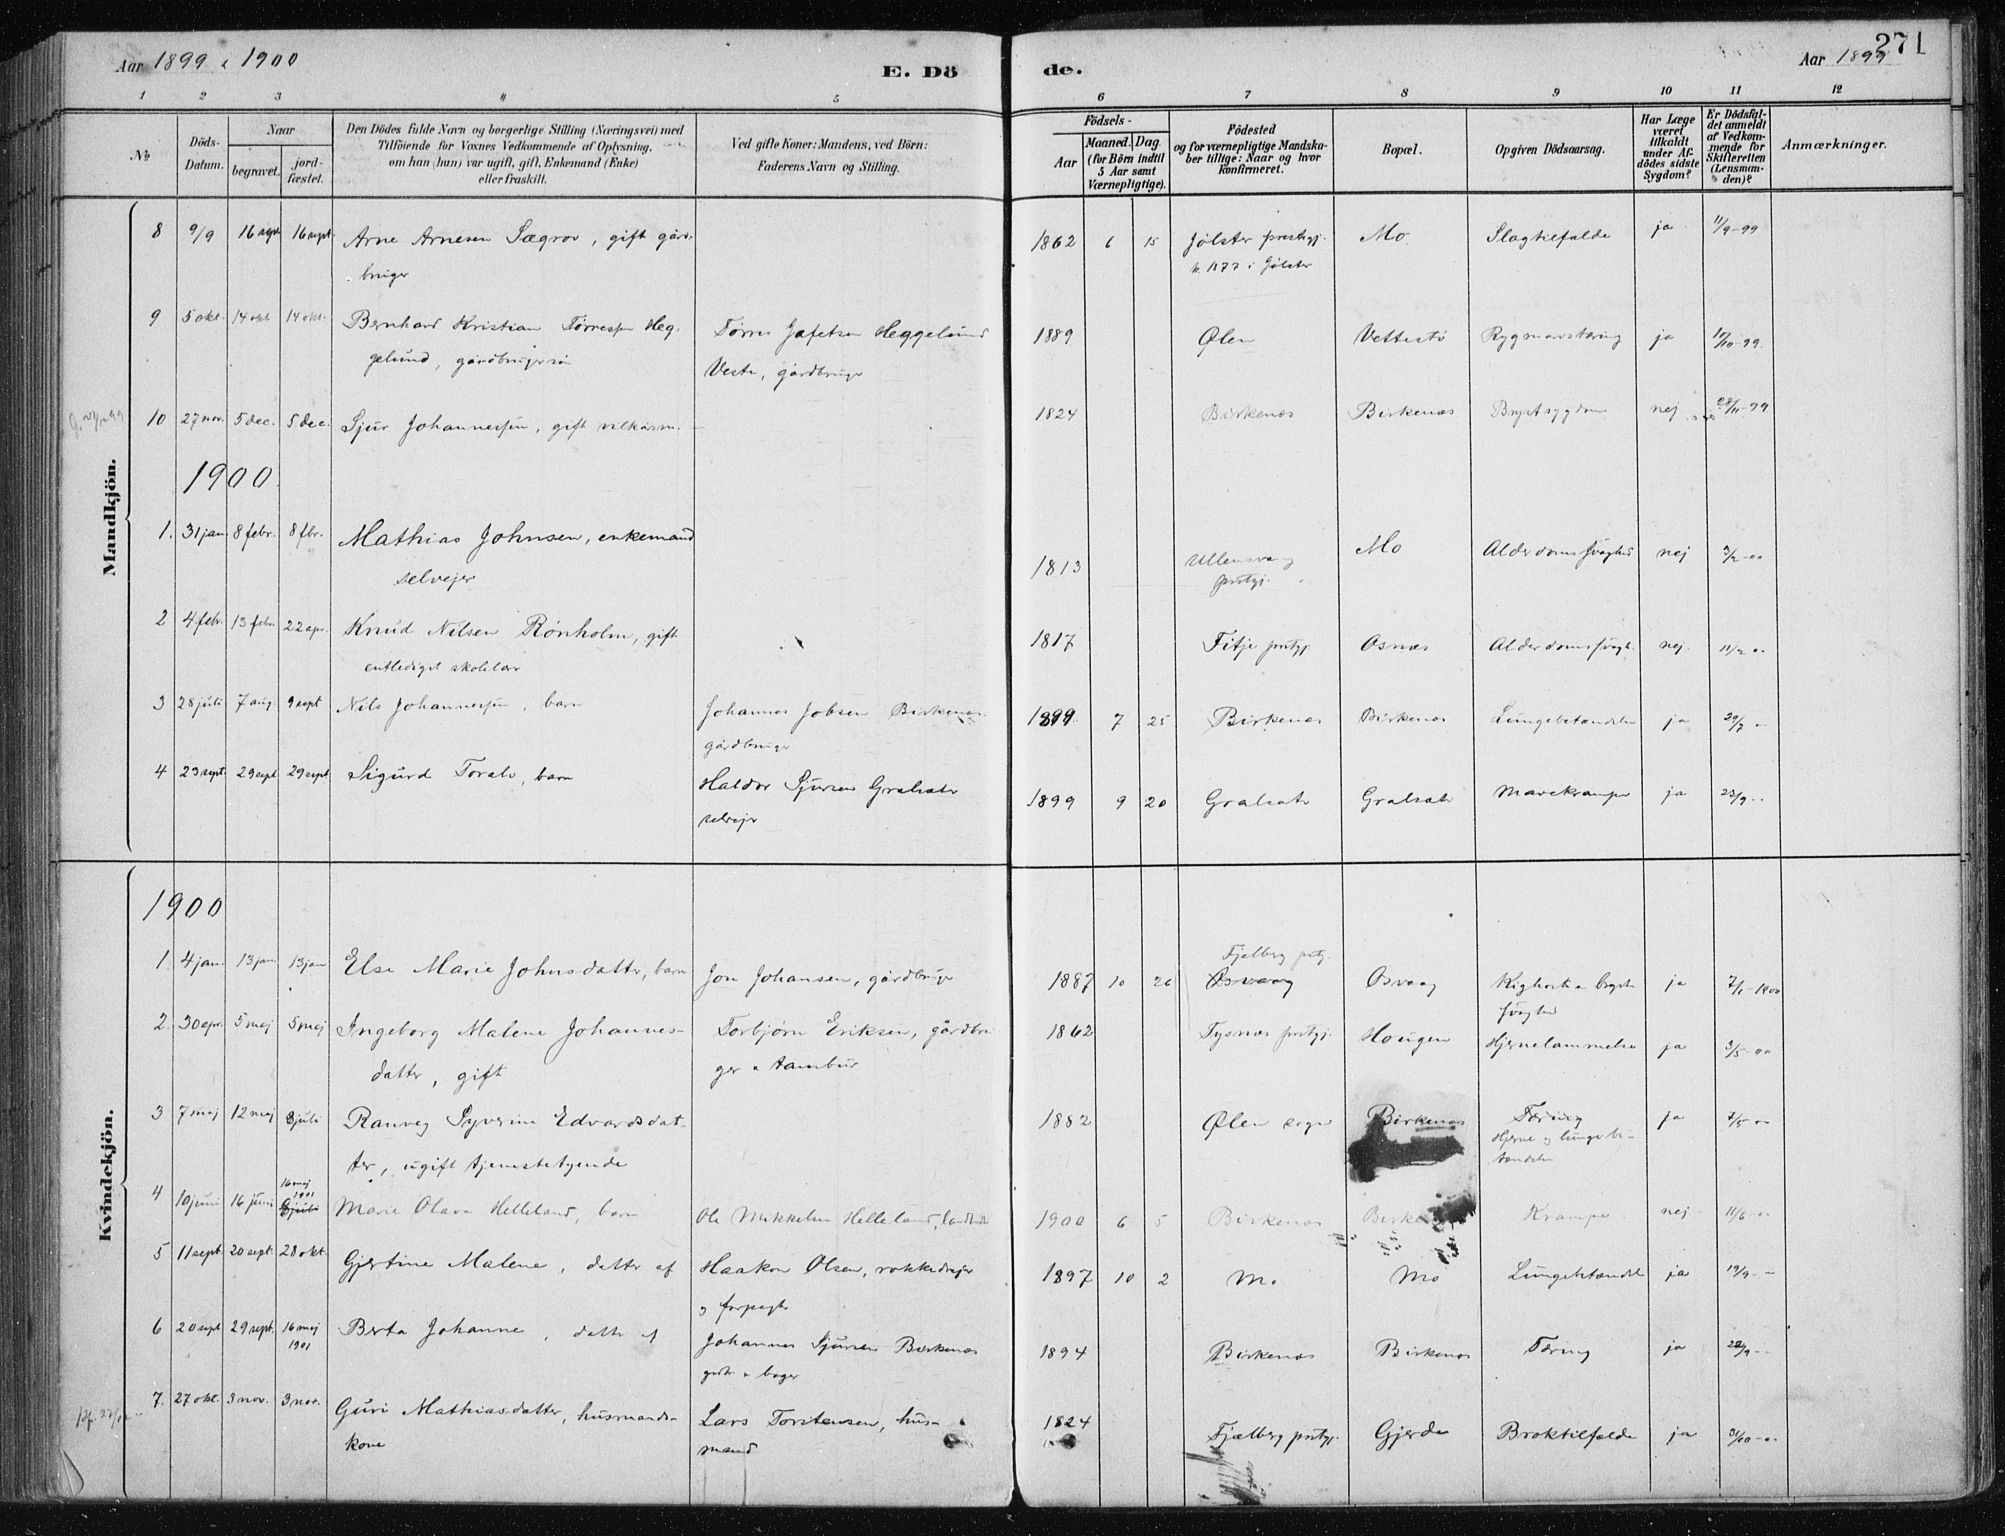 Aar 1899 & 1900
E. Dö
de.
Aar 1899
271
1 2 3 4 5 6 7 8 9 10 11 12
No
Döds-Datum.
Naar
begravet.
jord-fæstet.
Den Dödes fulde Navn og borgerlige Stilling (Næringsvei) med
Tilföiende for Voxnes Vedkommende af Oplysning,
om han (hun) var ugift, gift, Enkemand (Enke)
eller fraskilt.
Ved gifte Koner: Mandens, ved Börn:
Faderens Navn og Stilling.
Födsels-
Aar
Maaned. Dag.
(for Börn indtil
5 Aar samt
Værnepligtige).
Födested
og for værnepligtige Mandska-
ber tillige: Naar og hvor
konfirmeret.
Bopæl.
Opgiven Dödsaarsag.
Har Læge
været
tilkaldt
under Af-
dödes sidste
Sygdom?
Er Dödsfal-
det anmeldt
af Vedkom-
mende for
Skifteretten
(Lensman-
den)?
Anmærkninger.
Mandkjön.
8 9/9 16 sept 16 sept. Arne Arnesen Sægrov, gift gård- 1862 6 15 Jølster prestegj. Mo Slagtilfælde ja 11/9-99
bruger
k. 1877 i Jølster
9 5 okt. 14 okt 14 okt. Bernhard Kristian Tørressen Heg- Tørres Jafetsen Heggelund 1889 Ølen Vettestø Rygmarvstæring ja 10/10-99.
gelund, gårdbrugersøn Veste, gårdbruger
10 27 nov. 5 dec. 5 dec. Sjur Johannessen, gift vilkårsm. 1824 Birkenæs Birkenæs Brystsygdom nej 28/11-99
1900.
1. 31 jan. 8 febr. 8 fbr. Mathias Johnsen, enkemand 1813 Ullensvang Mo Alderdomssvaghed nej 3/2-00
selvejer prstgj.
2 4 febr. 13 febr. 22 apr. Knud Nilsen Rönholm, gift 1817 Fitje prstgj. Osnæs Alderdomssvagh. nej 11/2 00
entlediget skolelær
3 28 juli 7 aug. 9 sept Nils Johannessen, barn Johannes Jobsen Birkenæs 1899 7 25 Birkenæs Birkenæs Lungebetændelse ja 29/7 00
gårdbruger
4 23 sept. 29 sept 29 sept Sigurd Toralv, barn Haldor Sjursen Gralsate 1899 9 20 Gralsate Gralsate Mavekrampe ja 23/9
selvejer
Kvindekjön.
1900
Fjelberg prstgj.
1 4 jan. 13 jan 13 jan Else Marie Johnsdatter, barn Jon Johansen, gårdbruger 1887 10 26 Osvaag Osvaag Kighoste & bryst- ja 7/1-1900
svaghed
2. 30 apr. 5 maj 5 maj Ingeborg Malene Johannes- Torbjørn Eriksen, gårdbru 1862 Tysnæs prstgj. Hougen Hjernelammelse ja 3/5-00
datter, gift ger
3 7 maj 12 maj 8 juli Ranveg Syverine Edvardsdat- 1882 Ølen sogn Birkenæs Tæring ja 7/5 00
ter, ugift tjenestetyende Hjerne og lungebe-
tændelse
16 maj
1901
4 10 juni 16 juni 8 juli Marie Olava Helleland, barn Ole Mikkelsen Helleland, 1900 6 5 Birkenæs Birkenæs Krampe nej 11/6-00
5 11 sept 20 sept. 28 okt. Gjertine Malene, datter af Haakon Olsen, rokkedrejer 1897 10 2 Mo Mo Lungebetændelse ja 19/9
og forpagter
6 20 sept 29 sept. 16 maj Berta Johanne, datter af Johannes Sjursen Birkenæs 1894 Birkenæs Birkenæs Tæring ja 22/9
1901
7. 27 okt. 3 nov. 3 nov. Guri Mathiasdatter, husmands- Lars Torstensen, hus- 1824 Fjælberg prstgj. Gjerde Broktilfælde ja 31/10-00
kone mand